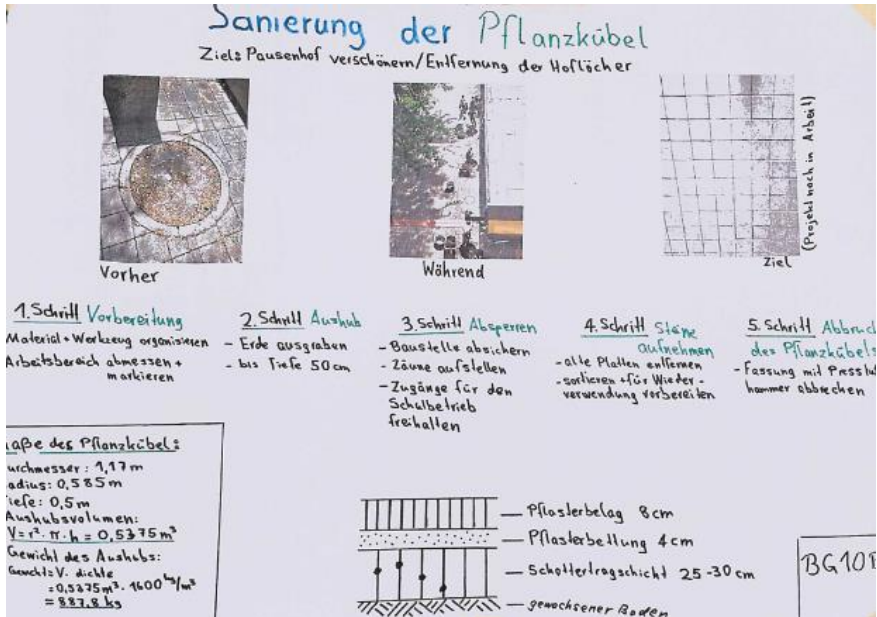 Sanierung der Pflanzkübel
Ziel: Pausenhof verschönern/Entfernung der Hoflöcher
Vorher
Während
Ziel
(Projekt noch in Arbeit)
1. Schritt Vorbereitung
Material + Werkzeug organisieren
Arbeitsbereich abmessen +
markieren
2. Schritt Aushub
- Erde ausgraben
- bis Tiefe 50 cm
3. Schritt Absperren
- Baustelle absichern
- Zäune aufstellen
- Zugänge für den
Schulbetrieb
freihalten
4. Schritt Steine
aufnehmen
- alte Platten entfernen
- sortieren + für Wieder-
verwendung vorbereiten
5. Schritt Abbruch
des Pflanzkübels
- Fassung mit Presslu
hammer abbrechen
aße des Pflanzkübel:
urchmesser: 1,17 m
adius: 0,585 m
iefe: 0,5 m
Aushubsvolumen:
V = r² · π · h = 0,5375 m³
Gewicht des Aushubs:
Gewicht = V · dichte
= 0,5375 m³ · 1600 kg/m³
= 887,8 kg
Pflasterbelag 8 cm
Pflasterbettung 4 cm
Schottertragschicht 25-30 cm
gewachsener Boden
BG10B